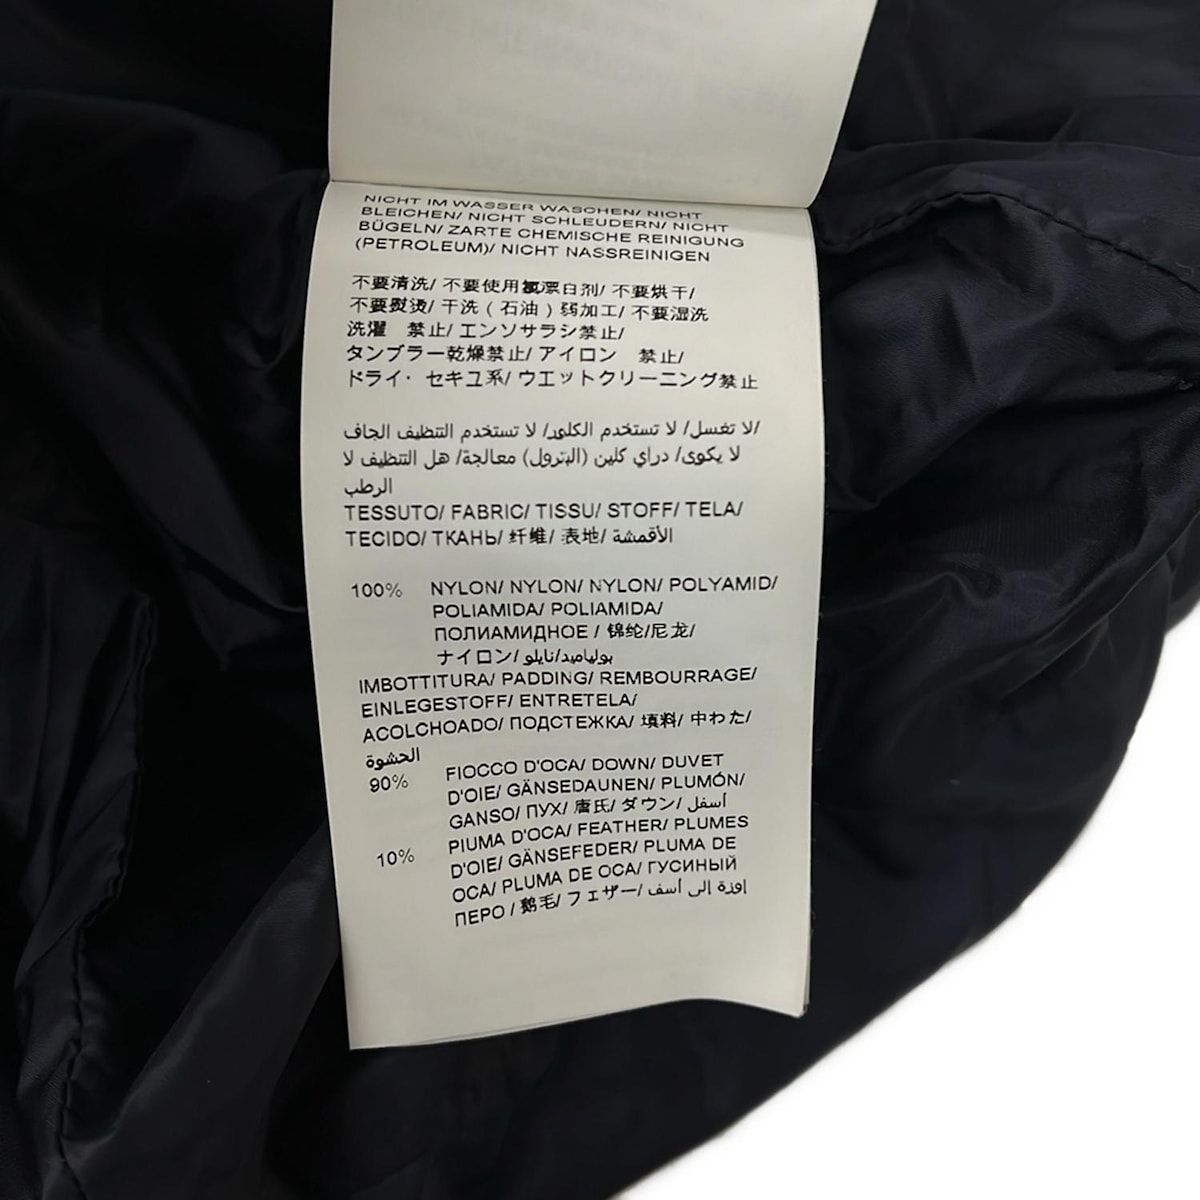 NICHT IM WASSER WASCHEN/ NICHT
BLEICHEN/ NICHT SCHLEUDERN/ NICHT
BÜGELN/ ZARTE CHEMISCHE REINIGUNG
(PETROLEUM)/ NICHT NASSREINIGEN
不要清洗/ 不要使用氯漂白剂/ 不要烘干/
不要熨烫/ 干洗 ( 石油 ) 弱加工/ 不要湿洗
洗濯 禁止/ エンソサラシ禁止/
タンブラー乾燥禁止/ アイロン 禁止/
ドライ· セキユ系/ ウエットクリーニング禁止
لا تغسل/ لا تستخدم الكلور/ لا تستخدم التنظيف الجاف/
لا يكوى/ دراي كلين (البترول) معالجة/ هل التنظيف لا
الرطب
TESSUTO/ FABRIC/ TISSU/ STOFF/ TELA/
TECIDO/ ТКАНЬ/ 纤维/ 表地/ الأقمشة/
100% NYLON/ NYLON/ NYLON/ POLYAMID/
POLIAMIDA/ POLIAMIDA/
ПОЛИАМИДНОЕ / 锦纶/尼龙/
ナイロン/ بولياميد/نايلو
IMBOTTITURA/ PADDING/ REMBOURRAGE/
EINLEGESTOFF/ ENTRETELA/
ACOLCHOADO/ ПОДСТЕЖКА/ 填料/ 中わた/
الحشوة
90% FIOCCO D'OCA/ DOWN/ DUVET
D'OIE/ GÄNSEDAUNEN/ PLUMÓN/
GANSO/ ПУХ/ 唐氏/ ダウン/ أسفل/
10% PIUMA D'OCA/ FEATHER/ PLUMES
D'OIE/ GÄNSEFEDER/ PLUMA DE
OCA/ PLUMA DE OCA/ ГУСИНЫЙ
ПЕРО / 鹅毛/ フェザー/ اوزة إلى أسف/